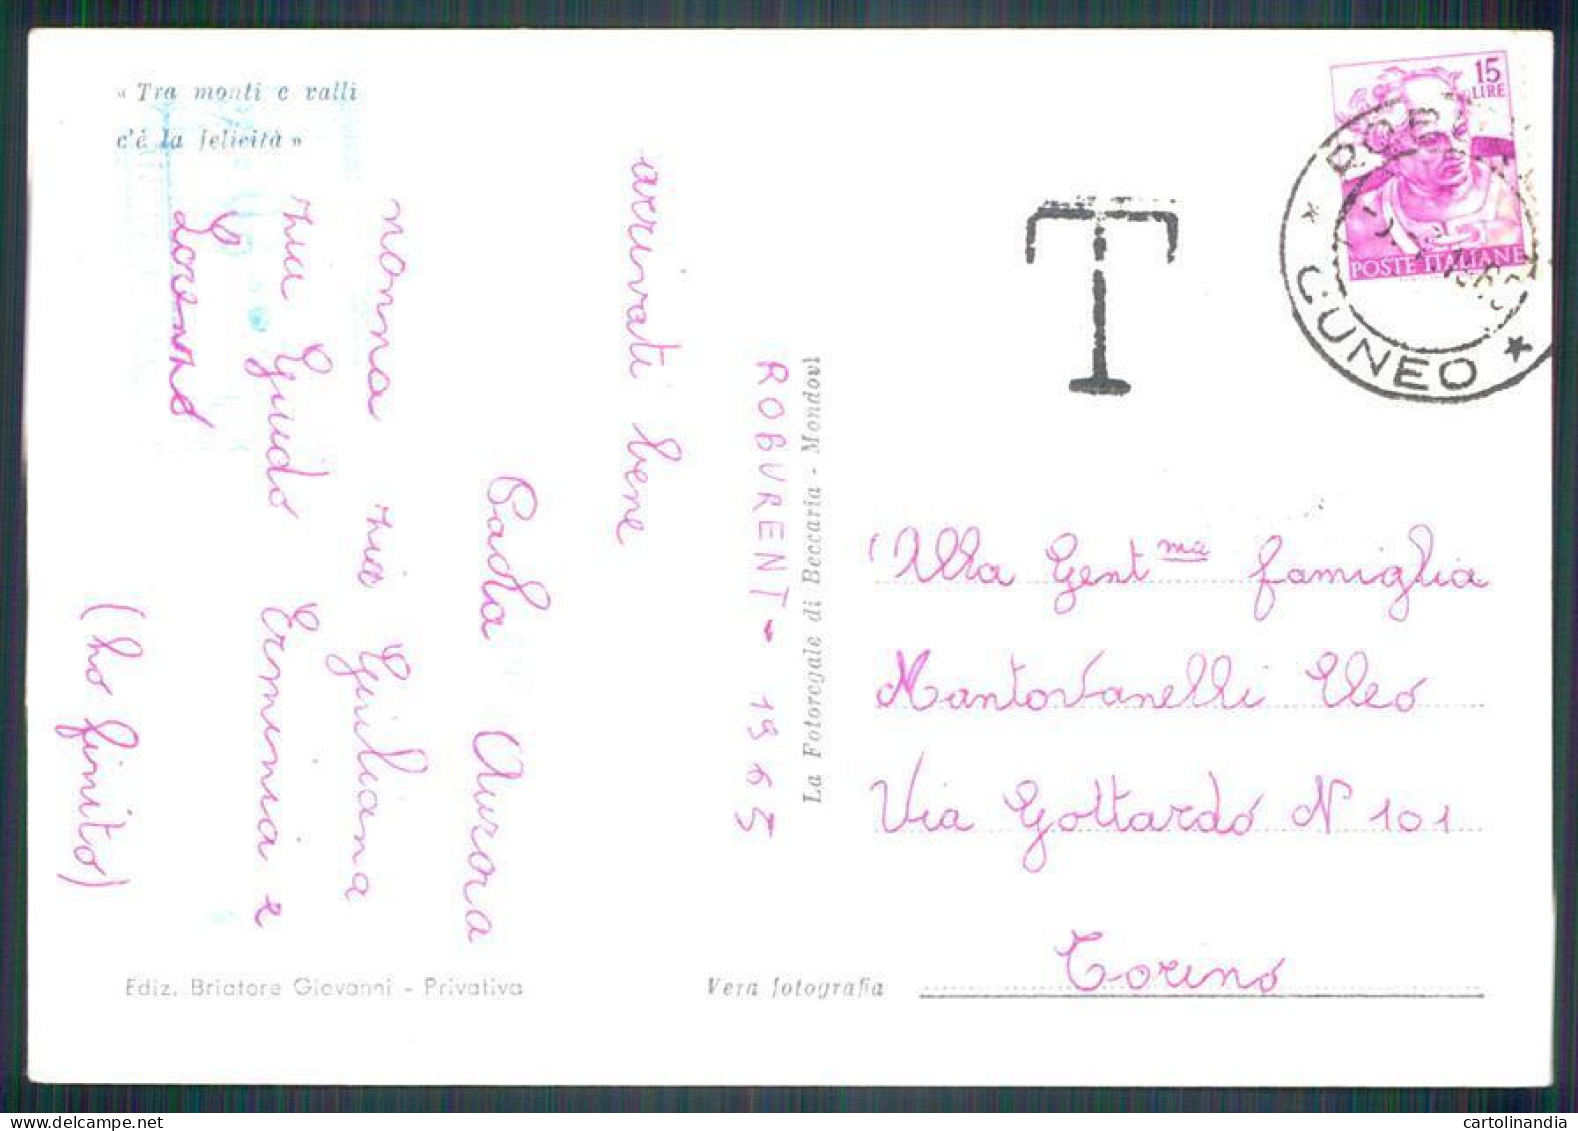 « Tra monti e valli
c'è la felicità »
arrivati bene
Paola Aurora
nonna zia Giuliana
zia Guido Erminia e
Lorenzo
(ho finito)
ROBURENT - 1965
La Fotoregale di Beccaria - Mondovì
Ediz. Briatore Giovanni - Privativa
Vera fotografia
T
15
LIRE
POSTE ITALIANE
* CUNEO *
Alla Gent ma famiglia
Mantovanelli Cleo
Via Gottardo N 101
Torino
cartolinandia